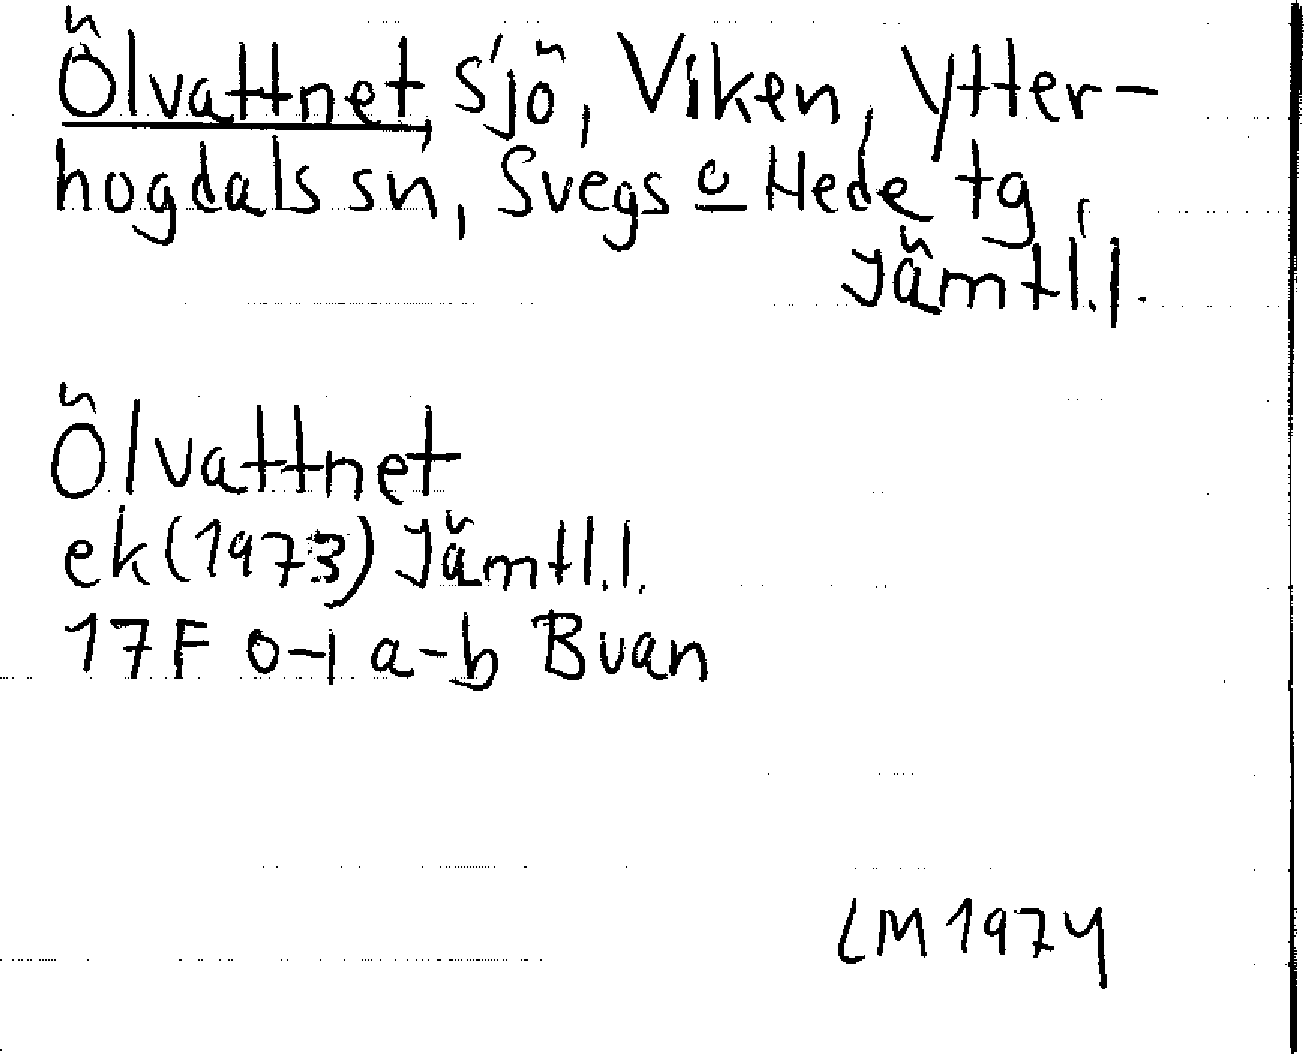 Ölvattnet, sjö, Viken, Ytter-
hogdals sn, Svegs o Hede tg,
Jämtl.l.
Ölvattnet
ek (1973) Jämtl.l.
17F 0-1 a-b Buan
LM 1974